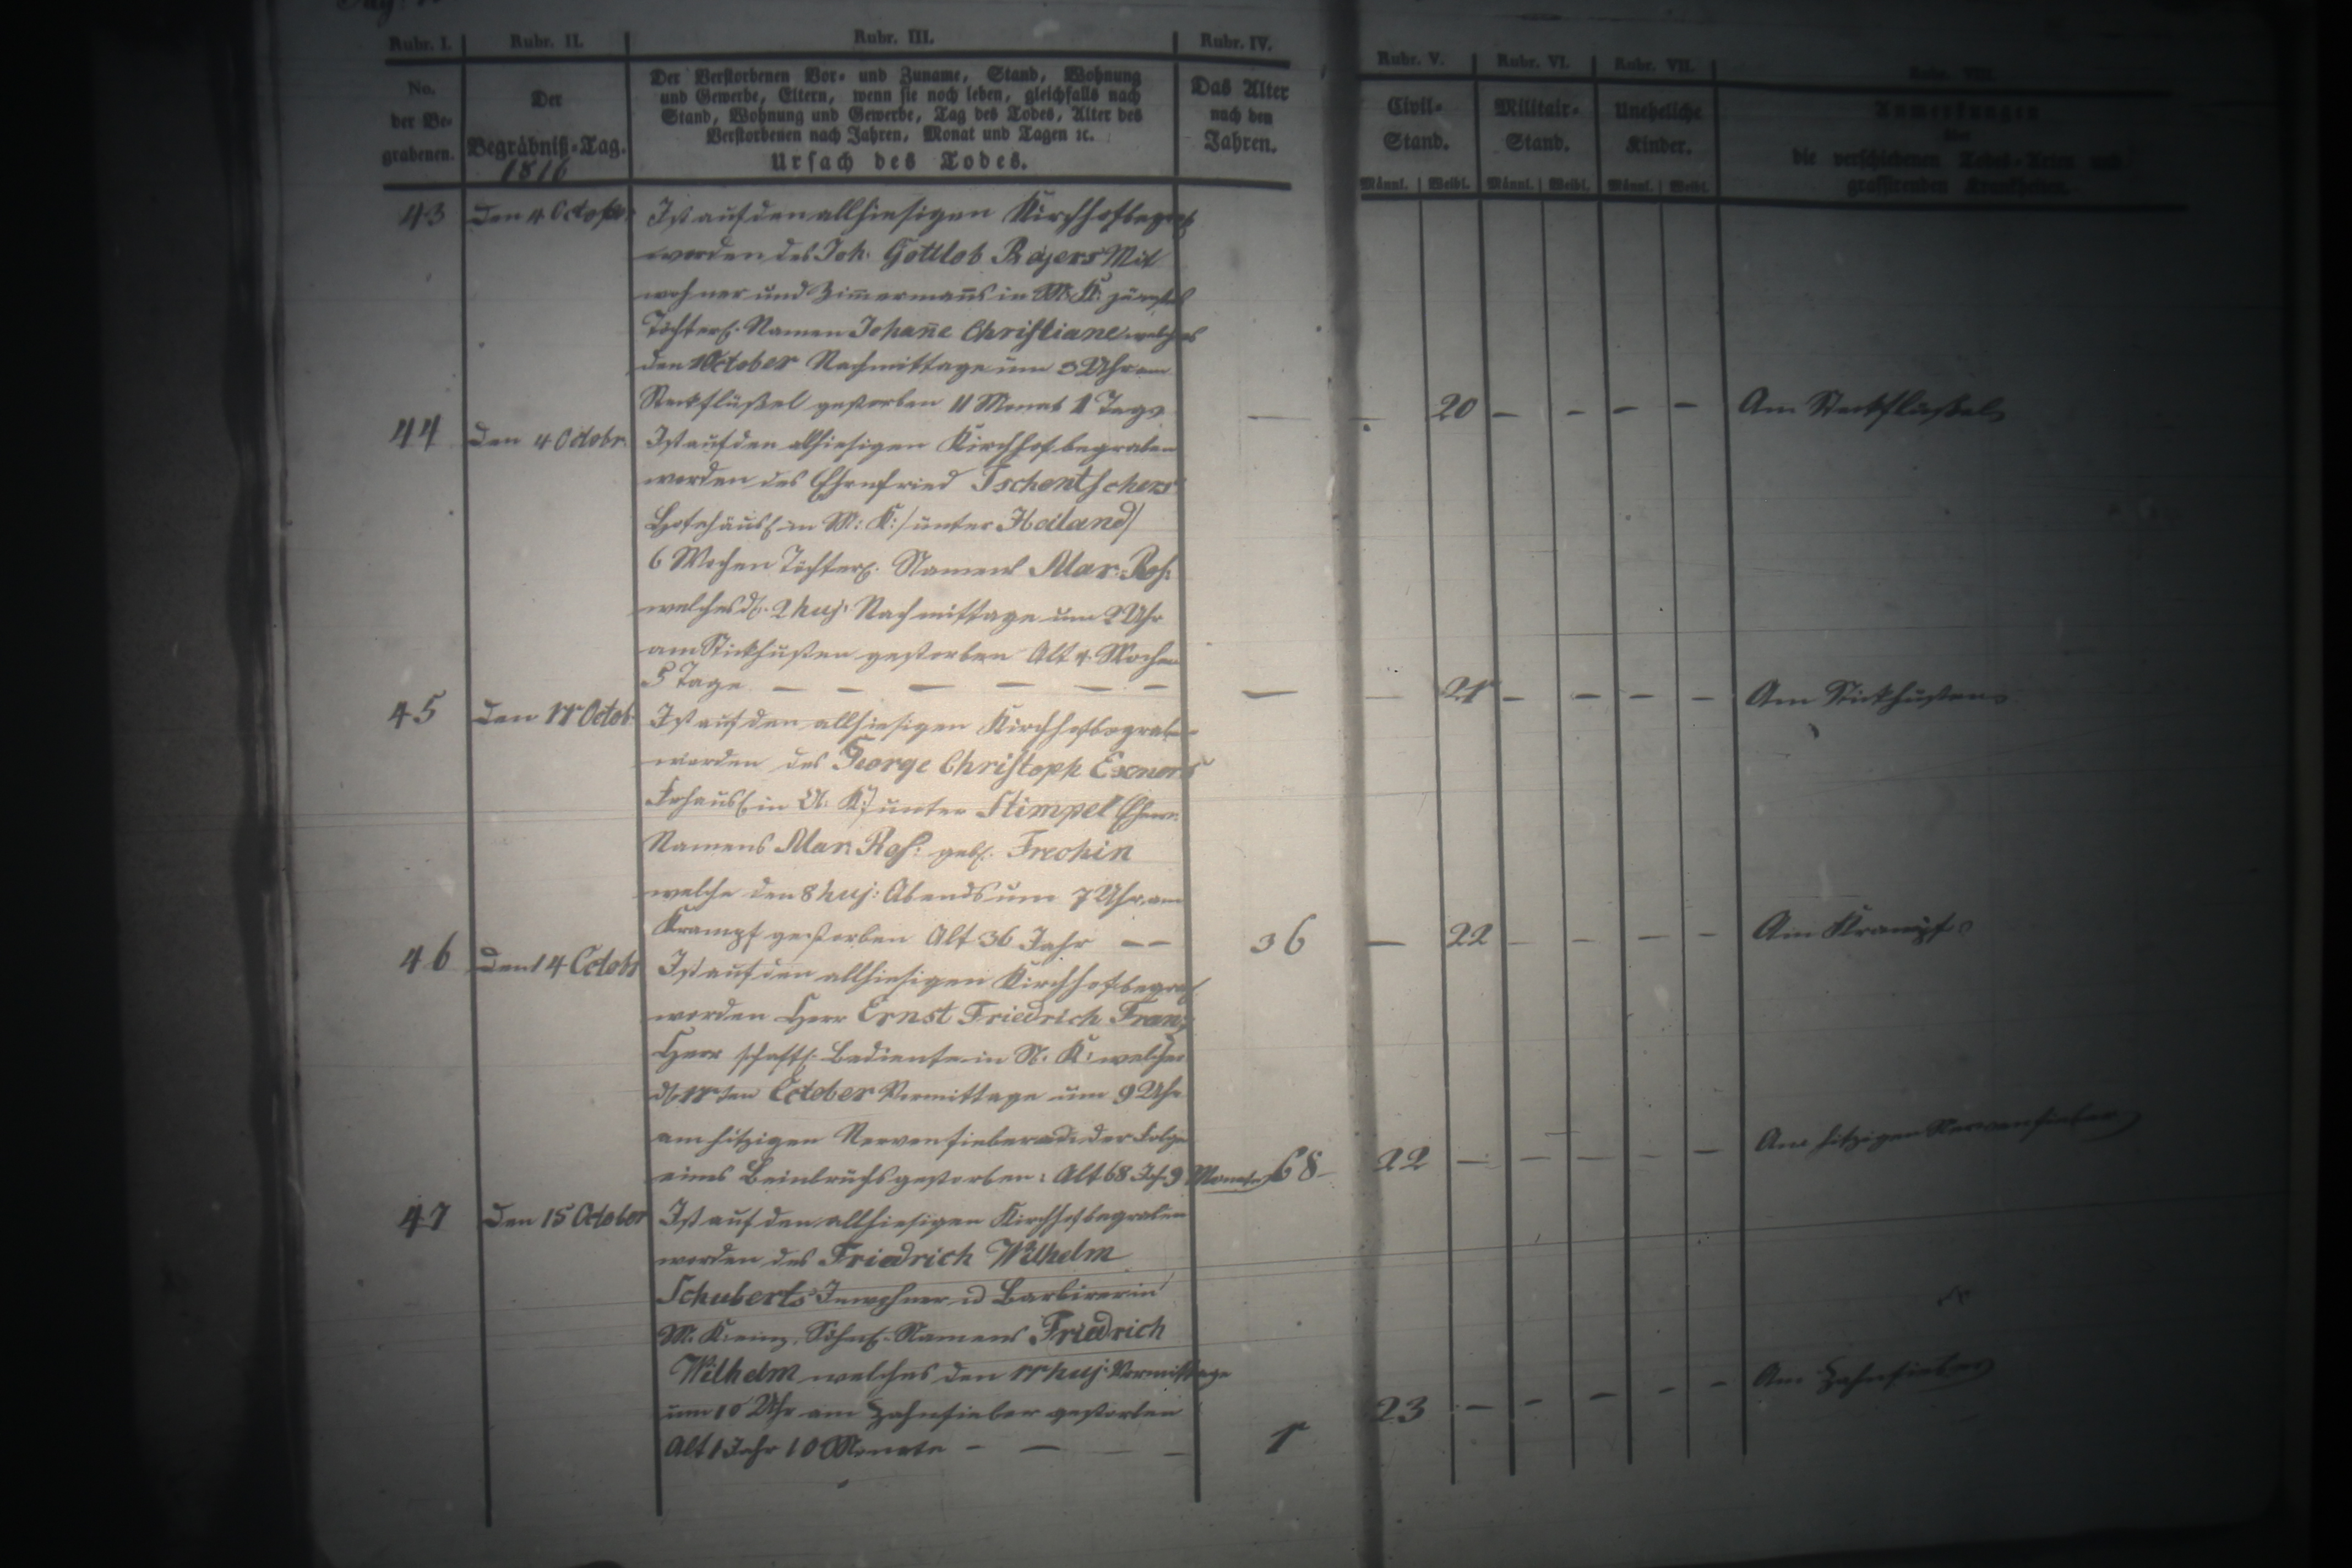 Rubr. I. Rubr. II. Rubr. III. Rubr. IV. Rubr. V. Rubr. VI. Rubr. VII. Rubr. VIII.
No. der Be- grabenen.
Der Begräbniß-Tag. 1816
Der Verstorbenen Vor- und Zuname, Stand, Wohnung
und Gewerbe, Eltern, wenn sie noch leben, gleichfalls nach
Stand, Wohnung und Gewerbe, Tag des Todes, Alter des
Verstorbenen nach Jahren, Monat und Tagen ꝛc.
Ursach des Todes.
Das Alter nach den Jahren.
Civil- Stand.
Militair- Stand.
Uneheliche Kinder.
Anmerkungen
über
die verschiedenen Todes-Arten und
grassirenden Krankheiten.
Männl. Weibl. Männl. Weibl. Männl. Weibl.
43 Den 4 Octobr. Ist auf den allhiesigen Kirchhof begrab
worden des Joh. Gottlob Mit
wohner und Zimermans in M: K: jüngstes
Töchterl. Namen Johane Christiane welches
den 1 October Nachmittage um 3 Uhr am
Steckflüßel gestorben 11 Monat 1 Tage — — 20 — — — — Am Steckflüßel
44 Den 4 Octobr. Ist auf den allhiesigen Kirchhof begraben
worden des Ehrenfried Tschentschers
Hofehäusl. in M: K: /unter Heiland/
6 Wochen Töchterl. Namens Mar. Ros.
welches d. 2 huj. Nachmittage um 2 Uhr
am Stickhusten gestorben Alt 4 Wochen
5 Tage — — — — — — — — 21 — — — — Am Stickhusten
45 Den 11 Octob. Ist auf den allhiesigen Kirchhof begraben
worden des George Christoph Exners
in K: /unter Stimpel Ehew.
Namens Mar. Ros. geb.
welche den 8 huj: Abends um 7 Uhr am
Krampf gestorben Alt 36 Jahr — — 36 — 22 — — — — Am Krampf
46 Den 14 Octobr Ist auf den allhiesigen Kirchhof begrab
worden Herr Ernst Friedrich Franz
Herrschaftl. Bediente in K: welcher
d. 11ten October Vormittage um 9 Uhr
am hitzigen Nervenfieber der Folge
eines Beinbruchs gestorben: Alt 68 Jah 9 Monate 68 22 — — — — — Am hitzigen Nervenfieber
47 Den 15 October Ist auf den allhiesigen Kirchhof begraben
worden des Friedrich Wilhelm
Schuberts Inwohner u Barbirer in
M. K: einz. Söhnl. Namens Friedrich
Wilhelm welches den 11 huj: Vormittage
um 10 Uhr am Zahnfieber gestorben
Alt 1 Jahr 10 Monate — — — — 1 23 — — — — — Am Zahnfieber